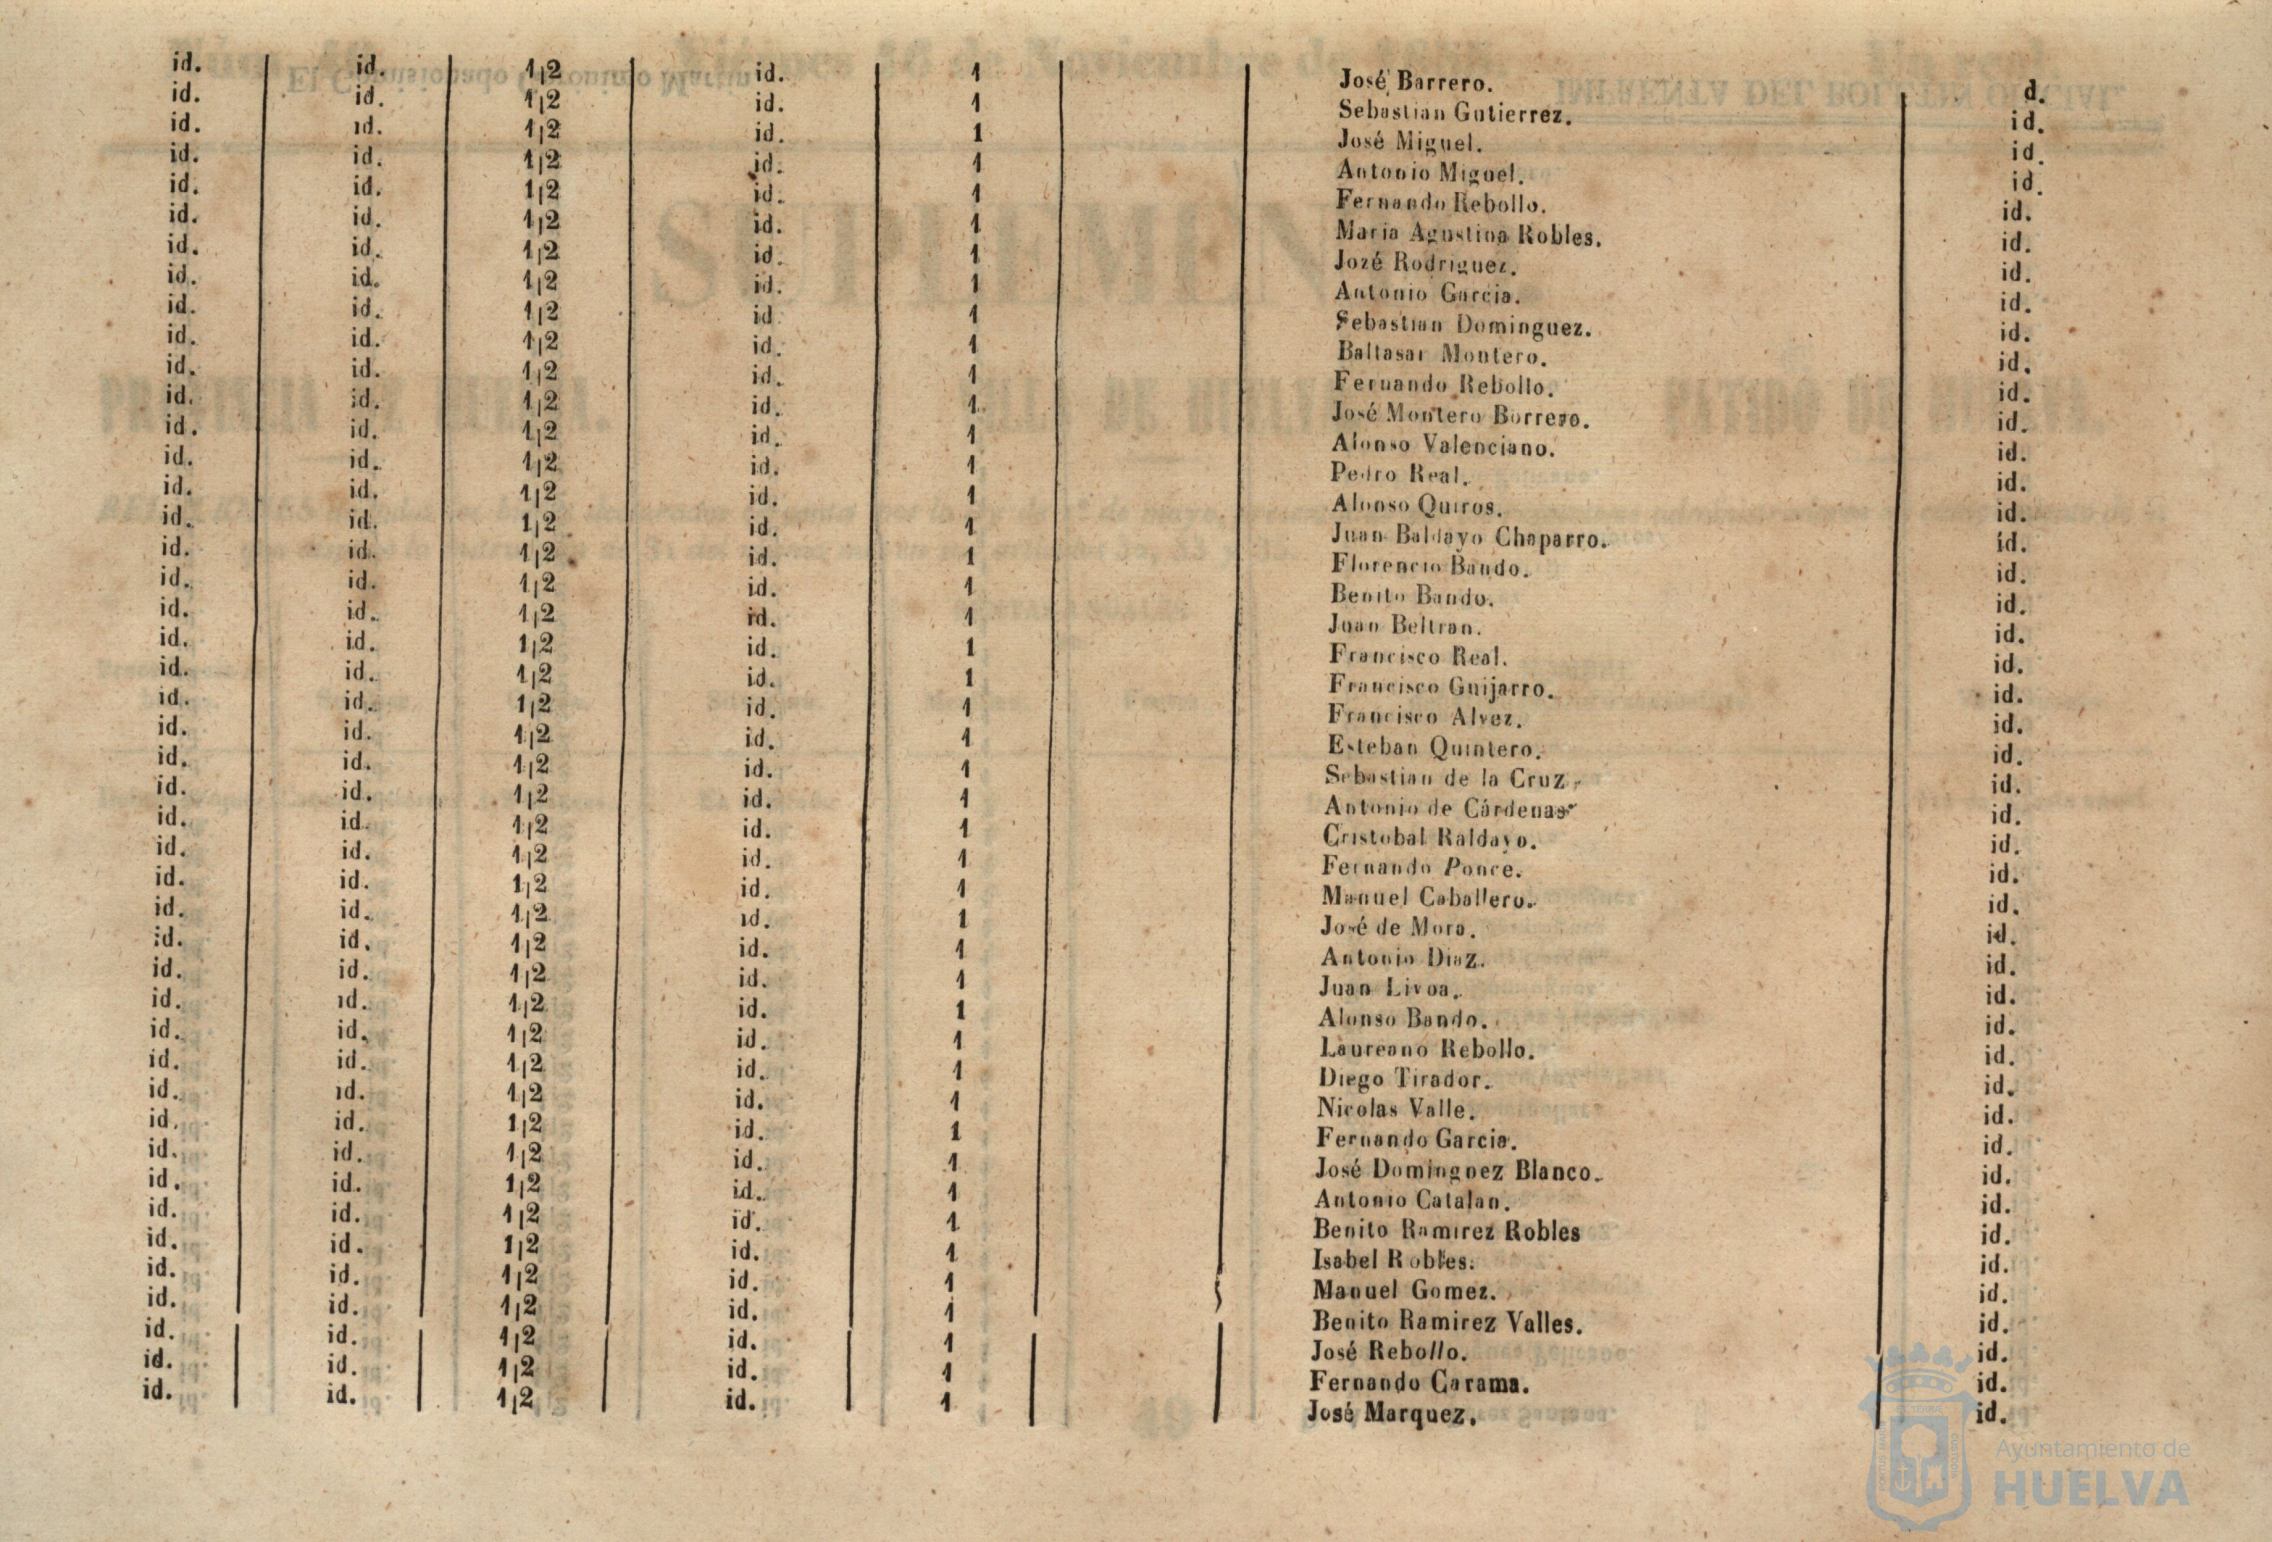 id. id. 1|2 id. 1 José Barrero. d.
id. id. 1|2 id. 1 Sebastian Gutierrez. id.
id. id. 1|2 id. 1 José Miguel. id.
id. id. 1|2 id. 1 Antonio Miguel. id.
id. id. 1|2 id. 1 Fernando Rebollo. id.
id. id. 1|2 id. 1 Maria Agustina Robles. id.
id. id. 1|2 id. 1 Jozé Rodriguez. id.
id. id. 1|2 id. 1 Antonio Garcia. id.
id. id. 1|2 id. 1 Sebastian Dominguez. id.
id. id. 1|2 id. 1 Baltasar Montero. id.
id. id. 1|2 id. 1 Fernando Rebollo. id.
id. id. 1|2 id. 1 José Montero Borrero. id.
id. id. 1|2 id. 1 Alonso Valenciano. id.
id. id. 1|2 id. 1 Pedro Real. id.
id. id. 1|2 id. 1 Alonso Quiros. id.
id. id. 1|2 id. 1 Juan Baldayo Chaparro. id.
id. id. 1|2 id. 1 Florencio Bando. id.
id. id. 1|2 id. 1 Benito Bando. id.
id. id. 1|2 id. 1 Juan Beltran. id.
id. id. 1|2 id. 1 Francisco Real. id.
id. id. 1|2 id. 1 Francisco Guijarro. id.
id. id. 1|2 id. 1 Francisco Alvez. id.
id. id. 1|2 id. 1 Esteban Quintero. id.
id. id. 1|2 id. 1 Sebastian de la Cruz. id.
id. id. 1|2 id. 1 Antonio de Cárdenas id.
id. id. 1|2 id. 1 Cristobal Raldayo. id.
id. id. 1|2 id. 1 Fernando Ponce. id.
id. id. 1|2 id. 1 Manuel Caballero. id.
id. id. 1|2 id. 1 José de Mora. id.
id. id. 1|2 id. 1 Antonio Diaz. id.
id. id. 1|2 id. 1 Juan Livoa. id.
id. id. 1|2 id. 1 Alonso Bando. id.
id. id. 1|2 id. 1 Laureano Rebollo. id.
id. id. 1|2 id. 1 Diego Tirador. id.
id. id. 1|2 id. 1 Nicolas Valle. id.
id. id. 1|2 id. 1 Fernando Garcia. id.
id. id. 1|2 id. 1 José Dominguez Blanco. id.
id. id. 1|2 id. 1 Antonio Catalan. id.
id. id. 1|2 id. 1 Benito Ramirez Robles id.
id. id. 1|2 id. 1 Isabel Robles. id.
id. id. 1|2 id. 1 Manuel Gomez. id.
id. id. 1|2 id. 1 Benito Ramirez Valles. id.
id. id. 1|2 id. 1 José Rebollo. id.
id. id. 1|2 id. 1 Fernando Carama. id.
id. id. 1|2 id. 1 José Marquez. id.
Ayuntamiento de
HUELVA